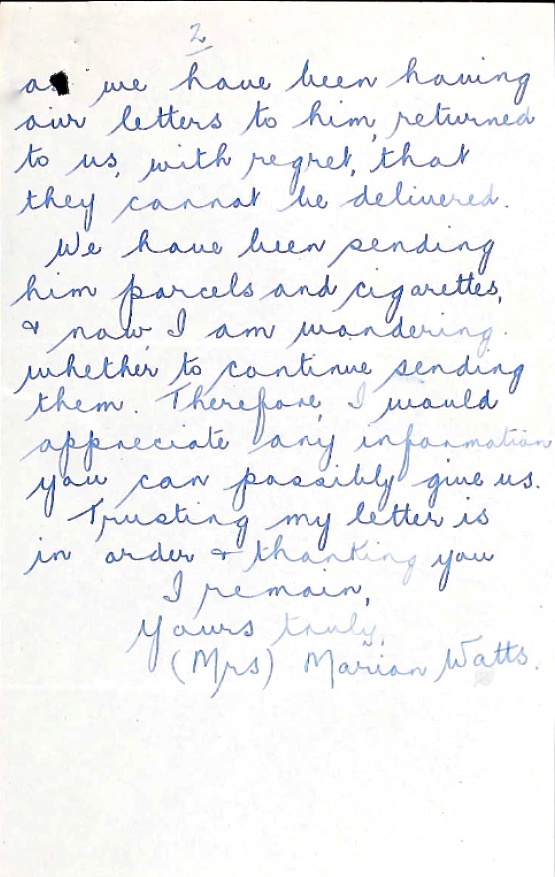 2
as we have been having
our letters to him, returned
to us, with regret, that
they cannot be delivered.
We have been sending
him parcels and cigarettes,
& now, I am wondering.
whether to continue sending
them. Therefore, I would
appreciate any information
you can possibly give us.
Trusting my letter is
in order & thanking you
I remain,
Yours truly,
(Mrs) Marion Watts.